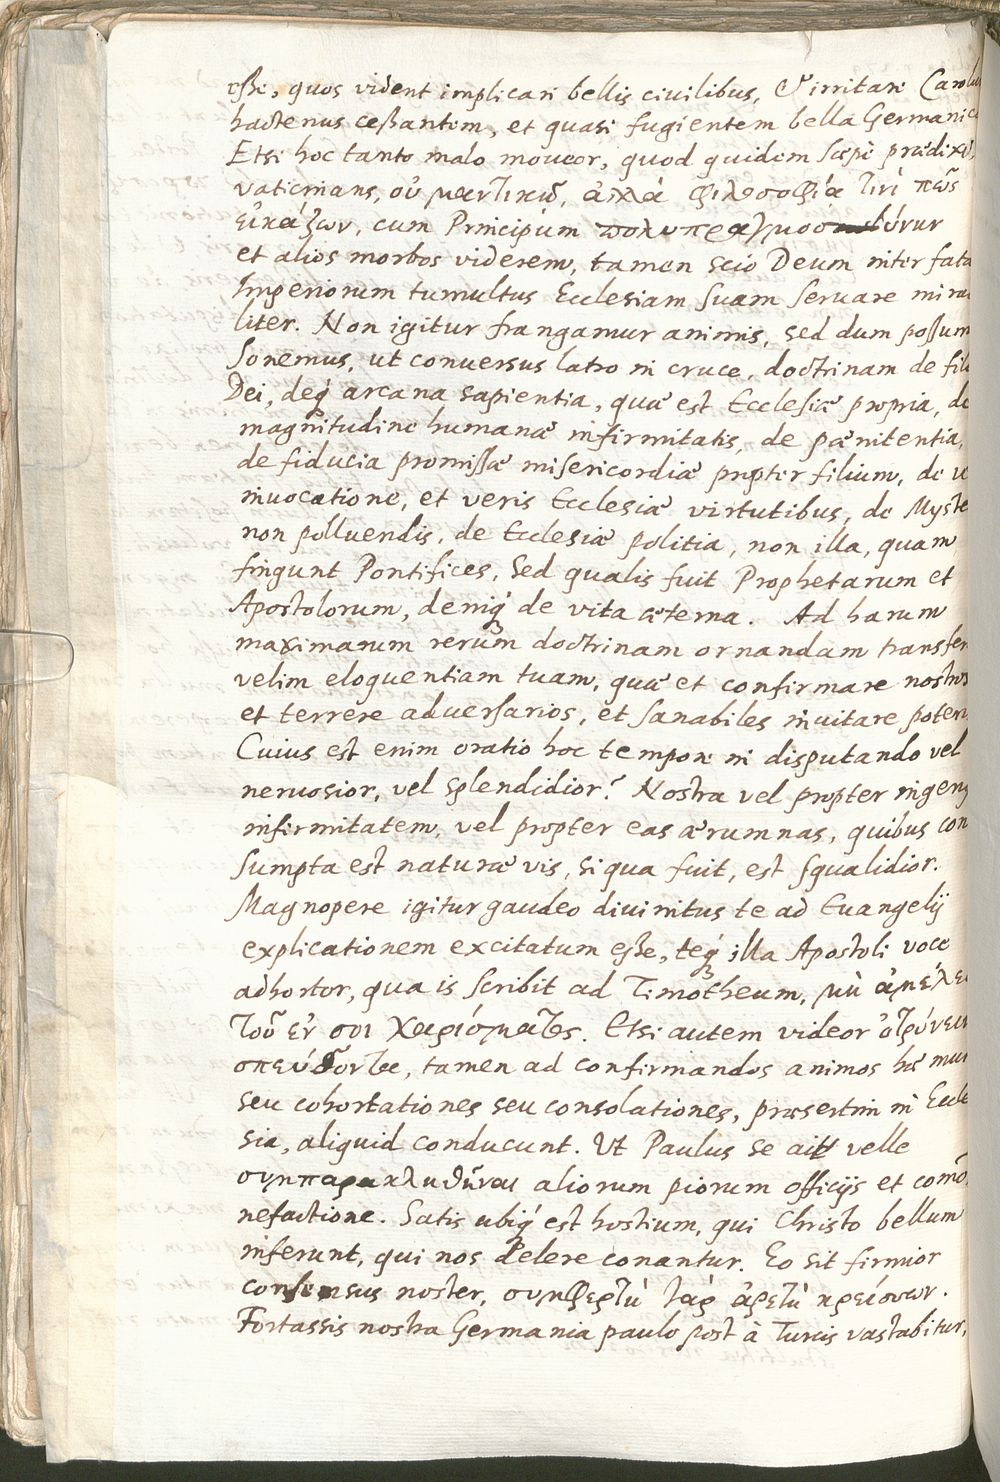 esse, quos vident implicari bellis civilibus, & irritari Carolu
hactenus cessantem, et quasi fugientem bella Germanica
Etsi hoc tanto malo moveor, quod quidem sæpe prædixi,
vaticinans, οὐ μαντικῶς, ἀλλὰ φιλοσοφίᾳ τινί πως
εἰκάζων, cum Principum πολυπραγμοσύνην
et alios morbos viderem, tamen scio Deum inter fata
Imperiorum tumultus Ecclesiam suam servare mirac
liter. Non igitur frangamur animis, sed dum possum
sonemus, ut conversus latro in cruce, doctrinam de fili
Dei, deq́ arcana sapientia, quæ est Ecclesiæ propria, de
magnitudine humanæ infirmitatis, de pænitentia,
de fiducia promissæ misericordiæ propter filium, de ve
invocatione, et veris Ecclesiæ virtutibus, de Myste
non polluendis, de Ecclesiæ politia, non illa, quam
fingunt Pontifices, sed qualis fuit Prophetarum et
Apostolorum, deniq́ de vita æterna. Ad harum
maximarum rerum doctrinam ornandam transfer
velim eloquentiam tuam, quæ et confirmare nostros
et terrere adversarios, et sanabiles invitare poteri
Cuius est enim oratio hoc tempore in disputando vel
nervosior, vel splendidior? Nostra vel propter ingenij
infirmitatem, vel propter eas ærumnas, quibus con
sumpta est naturæ vis, si qua fuit, est squalidior.
Magnopere igitur gaudeo divinitus te ad Euangelij
explicationem excitatum esse, teq́ illa Apostoli voce
adhortor, qua is scribit ad Timotheum, μὴ ἀμέλει
τοῦ ἐν σοι χαρίσματος. Etsi autem videor ὀτρύνειν
σπεύδοντα, tamen ad confirmandos animos hæ mut
seu cohortationes seu consolationes, præsertim in Eccle
sia, aliquid conducunt. Ut Paulus se ait velle
συμπαρακληθῆναι aliorum piorum officijs et com̄o
nefactione. Satis ubiq́ est hostium, qui Christo bellum
inferunt, qui nos delere conantur. Eo sit firmior
consensus noster, συμφερτὴ γὰρ ἀρετὴ κρείσσων.
Fortassis nostra Germania paulo post à Turcis vastabitur,